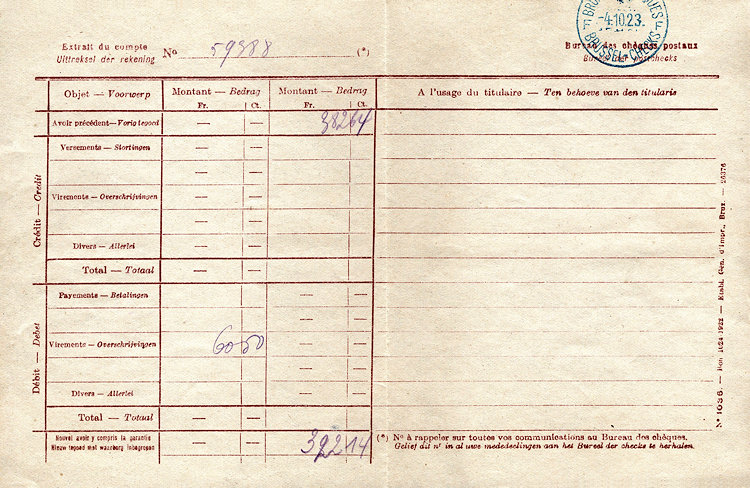 BRUSSEL-CHECKS
-4.10.23.
Extrait du compte
Uittreksel der rekening
Nº (*)
Bureau des chèques postaux
Bureel der postchecks
Objet — Voorwerp
Montant — Bedrag
Fr. Ct.
Montant — Bedrag
Fr. Ct.
A l'usage du titulaire — Ten behoeve van den titularis
Crédit — Credit
Avoir précédent — Vorig tegoed — — 382 64
Versements — Stortingen — —
— —
Virements — Overschrijvingen — —
— —
Divers — Allerlei — —
Total — Totaal — —
Débit — Debet
Payements — Betalingen — —
— —
Virements — Overschrijvingen 60 50 — —
— —
Divers — Allerlei — — —
Total — Totaal — — — —
Nouvel avoir y compris la garantie
Nieuw tegoed met waarborg inbegrepen
— — 322 14
(*) Nº à rappeler sur toutes vos communications au Bureau des chèques.
Gelief dit nr in al uwe mededeelingen aan het Bureel der checks te herhalen.
Nº 1036. — Bon 1024 1922 — Etabl. Gén. d'Impr., Brux. — 26376